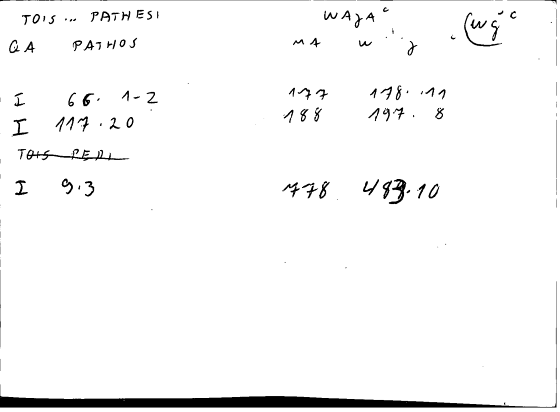 TOIS ... PATHESI WAJA^c (wg^c
QA PATHOS MA W J
I 66. 1-2 177 178. 11
I 117.20 188 197. 8
TOIS PEDI
I 9.3 778 .10